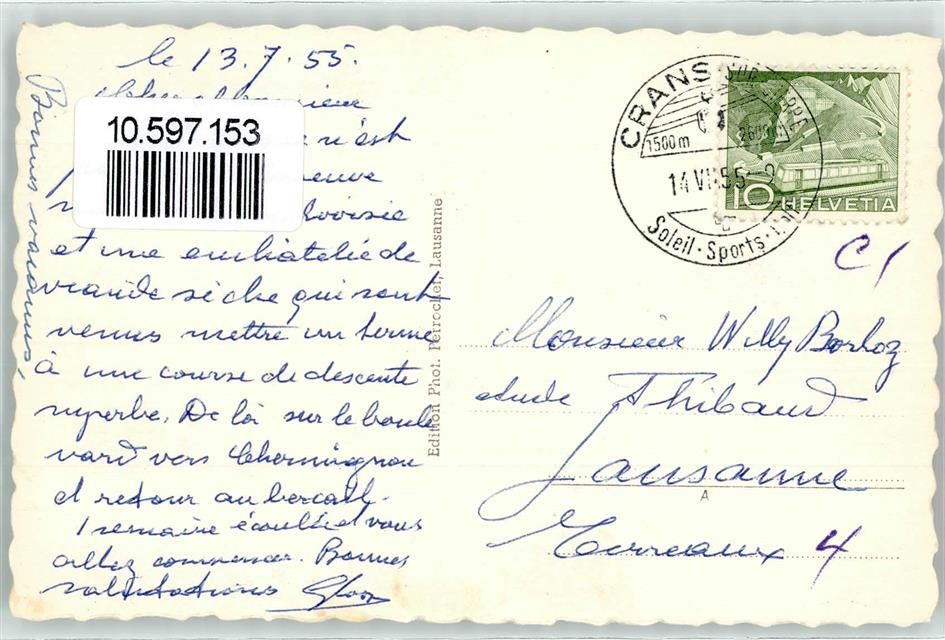 le 13.7.55.
10.597.153
n'est
et une
viande sèche qui sont
venus mettre un terme
à une course de descente
superbe. De là sur le boule
vard vers Chermignon
et retour au bercail.
1 semaine écoulée et vous
allez commencer. Bonnes
salutations
Bonnes vacances,
Edition Phot. Perrochet, Lausanne
CRANS SUR SIERRE
1500m 2600m
14 VII 55
Soleil · Sports ·
10 HELVETIA
C1
Monsieur Willy Borloz
étude Thibaud
Lausanne
A
Terreaux 4